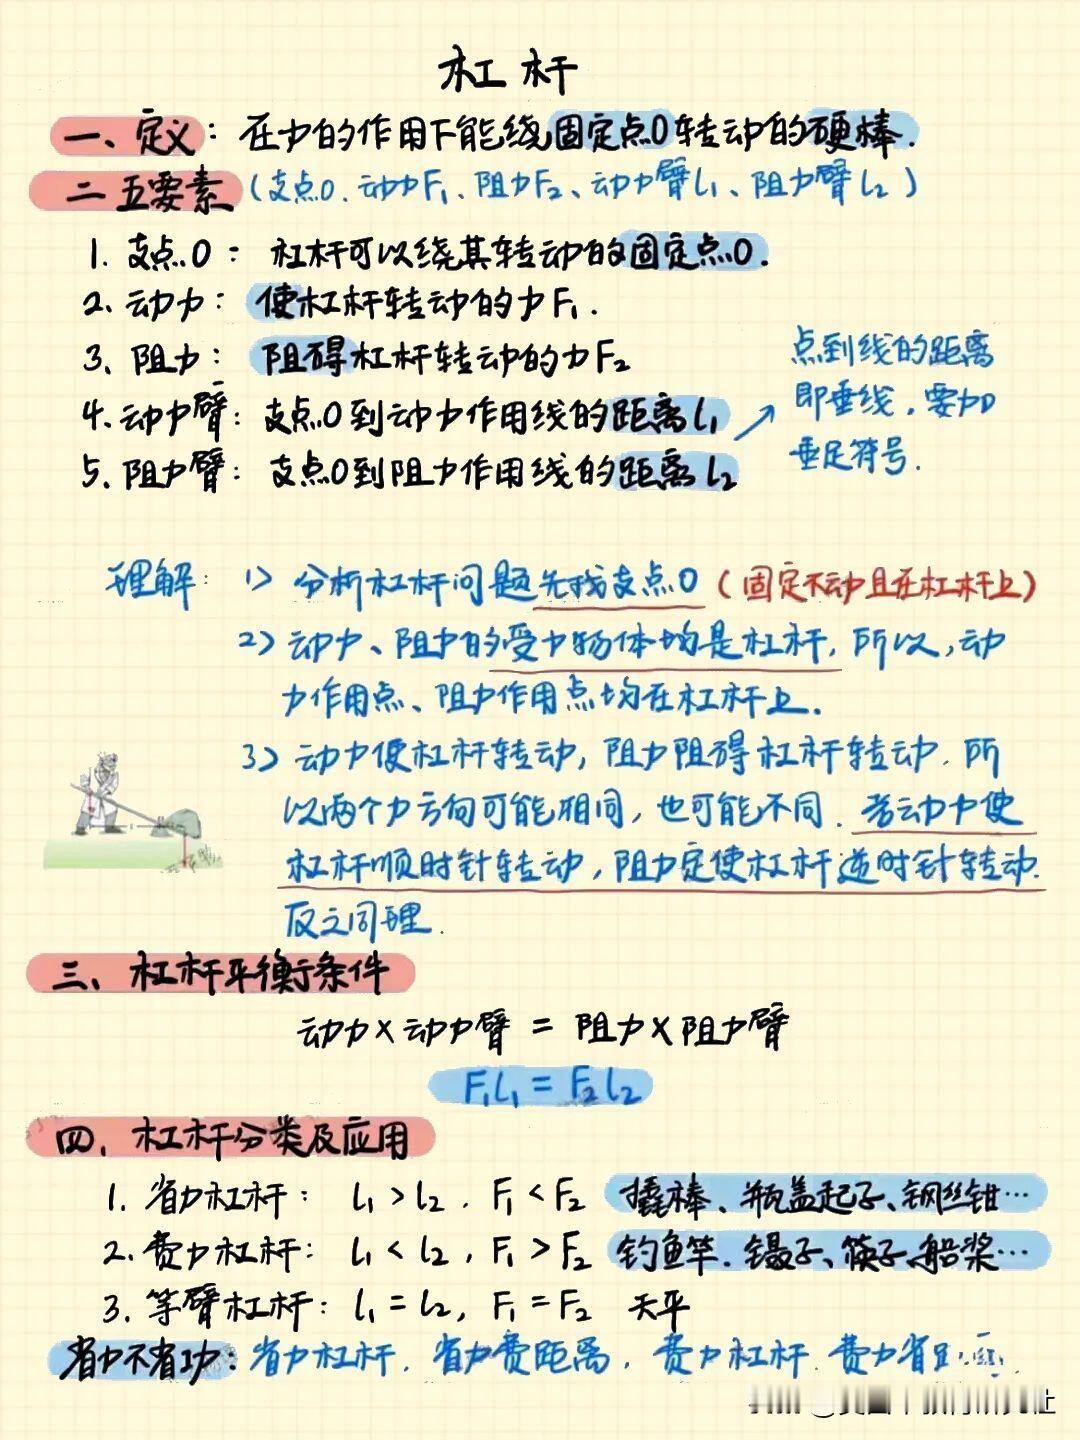 杠杆
一、定义：在力的作用下能绕固定点O转动的硬棒.
二 五要素（支点O. 动力F₁、阻力F₂、动力臂l₁、阻力臂l₂）
1. 支点O：杠杆可以绕其转动的固定点O.
2. 动力：使杠杆转动的力F₁.
3. 阻力：阻碍杠杆转动的力F₂
4. 动力臂：支点O到动力作用线的距离l₁
5. 阻力臂：支点O到阻力作用线的距离l₂
点到线的距离
即垂线，要加
垂足符号.
理解：1）分析杠杆问题先找支点O（固定不动且在杠杆上）
2）动力、阻力的受力物体均是杠杆，所以，动
力作用点、阻力作用点均在杠杆上.
3）动力使杠杆转动，阻力阻碍杠杆转动. 所
以两个力方向可能相同，也可能不同. 若动力使
杠杆顺时针转动，阻力定使杠杆逆时针转动.
反之同理.
三、杠杆平衡条件
动力×动力臂 = 阻力×阻力臂
F₁l₁ = F₂l₂
四、杠杆分类及应用
1. 省力杠杆：l₁>l₂. F₁<F₂ 撬棒、瓶盖起子、钢丝钳…
2. 费力杠杆：l₁<l₂, F₁>F₂ 钓鱼竿. 镊子、筷子、船桨…
3. 等臂杠杆：l₁=l₂, F₁=F₂ 天平
省力不省功：省力杠杆. 省力费距离，费力杠杆. 费力省距离.